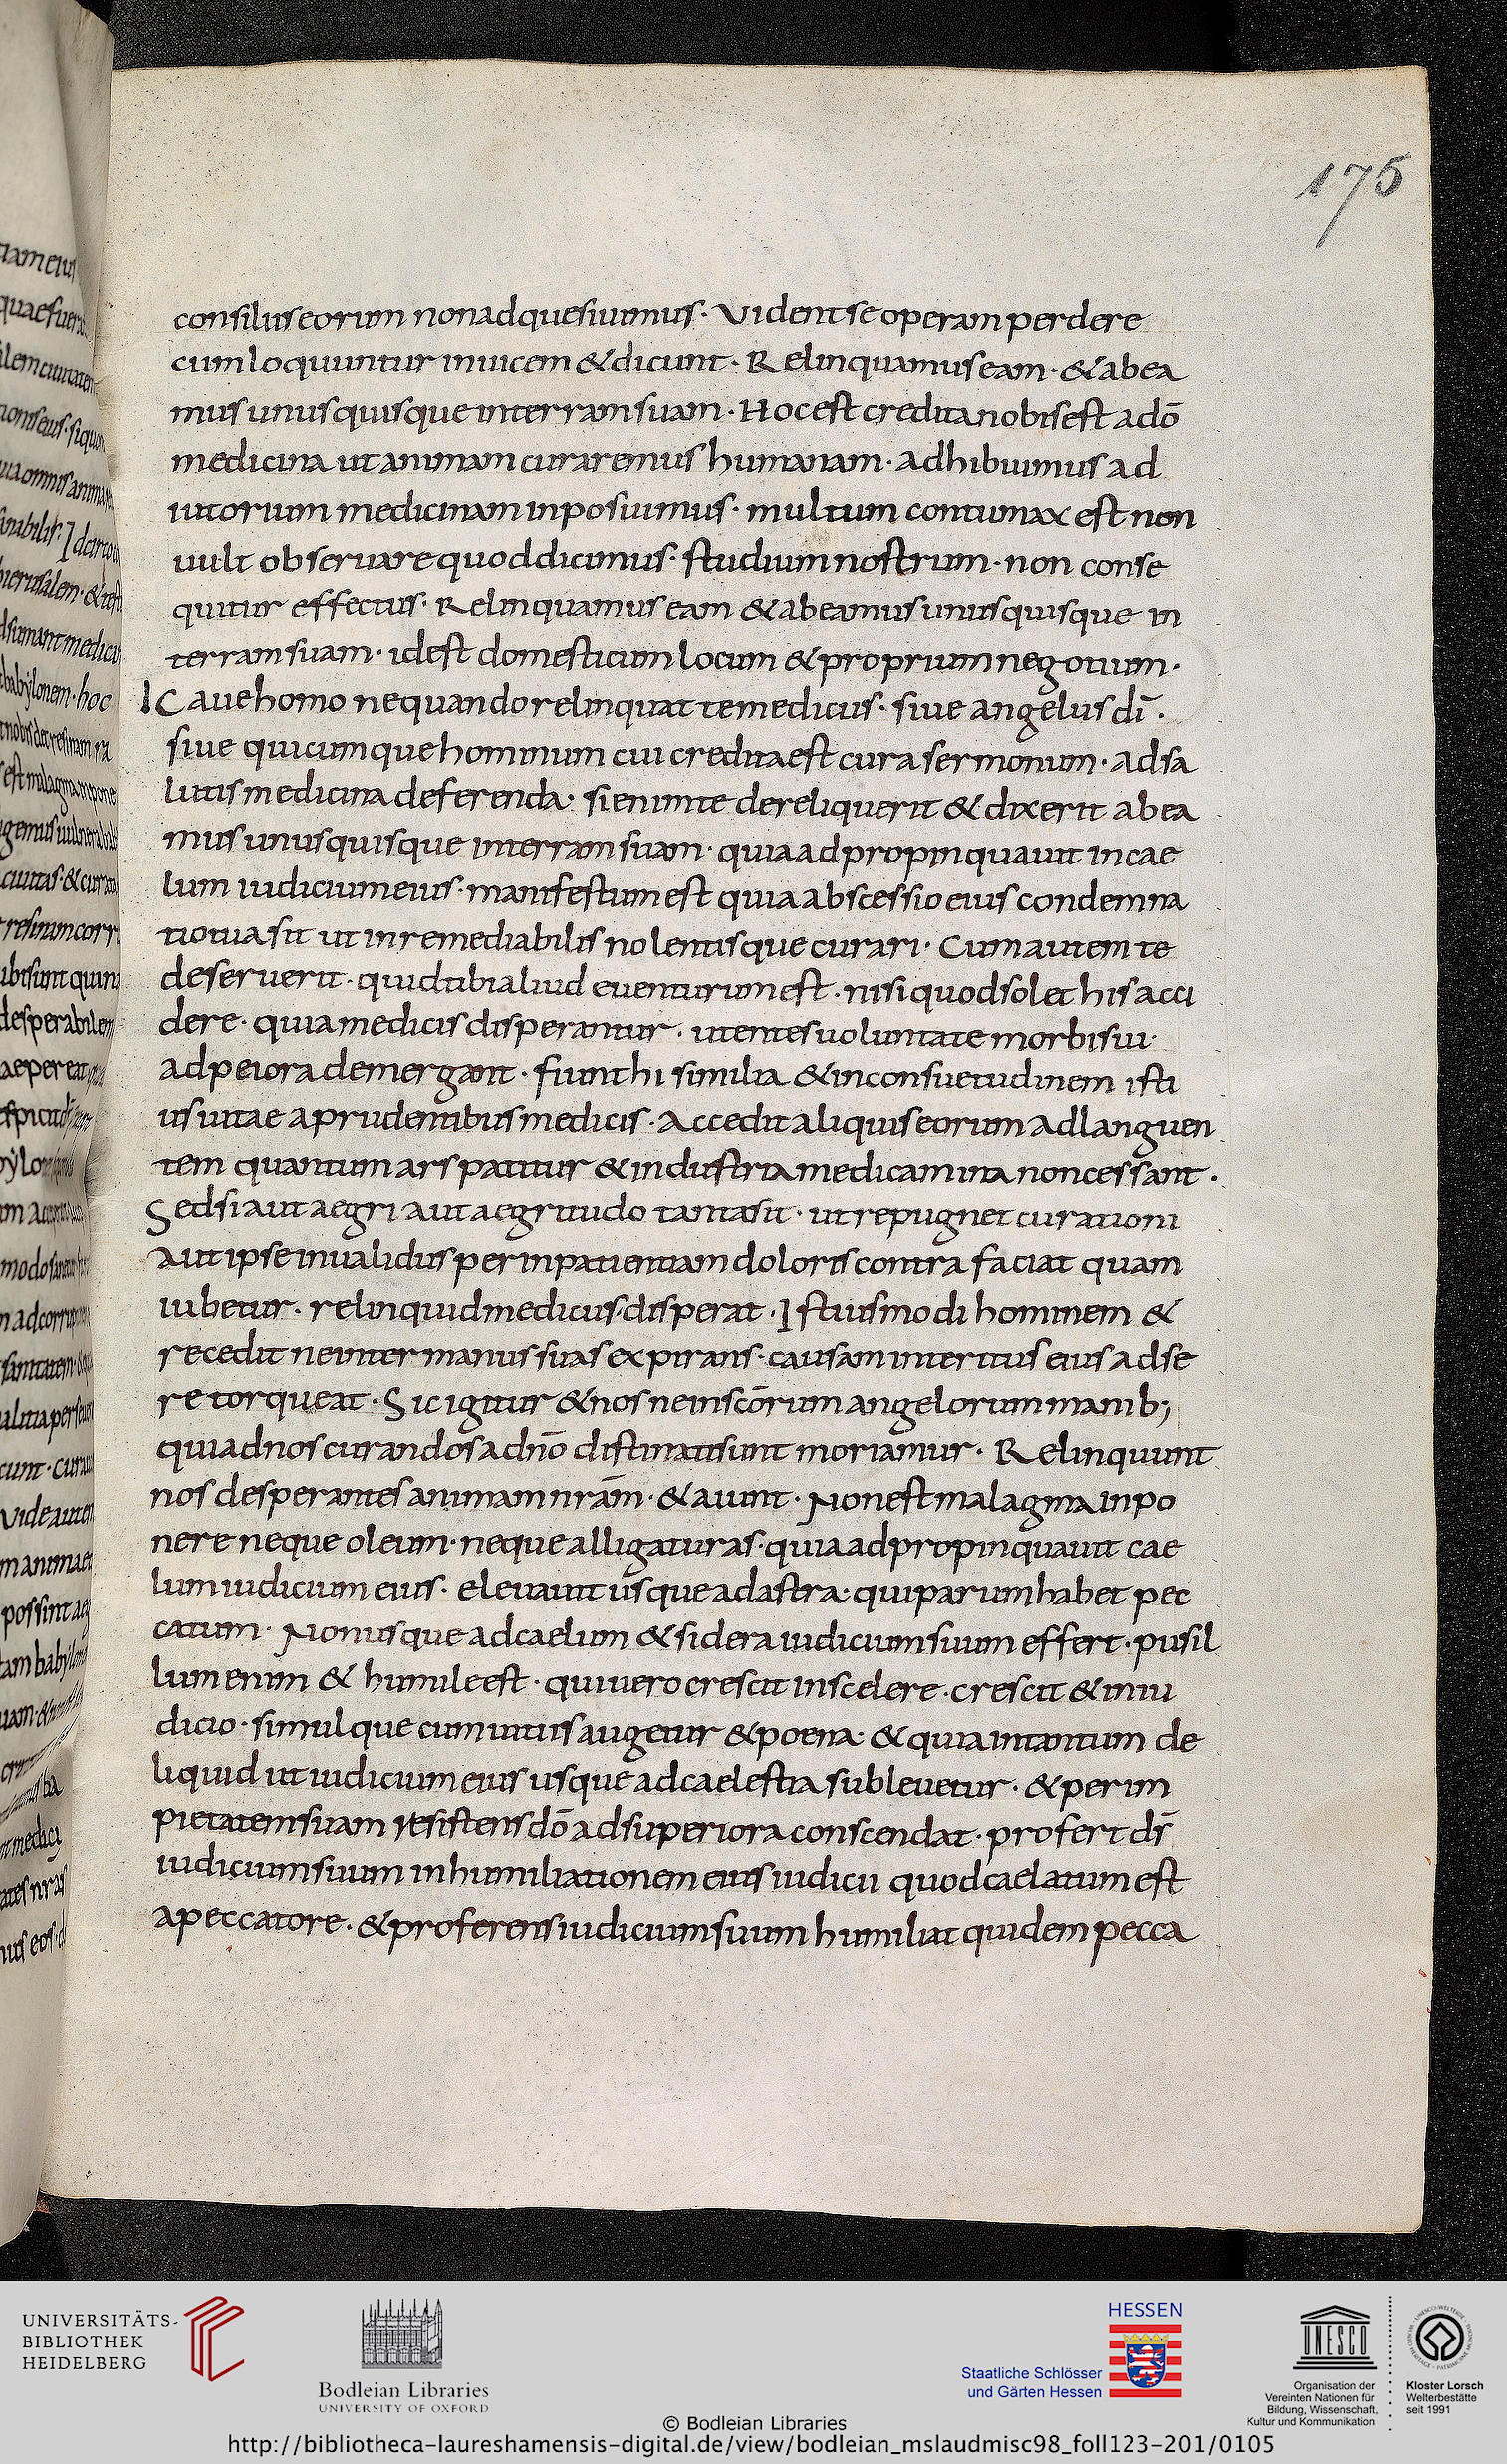 175
consiliis eorum non adquesiuimus. Vident se operam perdere
cum loquuntur inuicem & dicunt. Relinquamus eam. & abea
mus unusquisque in terram suam. Hoc est credita nobis est a dō
medicina ut animam curaremus humanam. adhibuimus ad
iutorium medicinam inposuimus. multum contumax est non
uult obseruare quod dicimus. studium nostrum. non conse
quitur effectus. Relinquamus eam & abeamus unusquisque in
terram suam. id est domesticum locum & proprium negotium.
Caue homo ne quando relinquat te medicus. siue angelus dī.
siue quicumque hominum cui credita est cura sermonum. ad sa
lutis medicina deferenda. si enim te dereliquerit & dixerit abea
mus unusquisque in terram suam. quia adpropinquauit in cae
lum iudicium eius. manifestum est quia abscessio eius condemna
tio tua sit ut inremediabilis nolentisque curari. Cum autem te
deseruerit. quid tibi aliud euenturum est. nisi quod solet his acci
dere. quia medicis disperantur. utentes uoluntate morbi sui.
ad peiora demergant. fiunt hi similia & in consuetudinem isti
us uitae a prudentibus medicis. Accedit aliquis eorum ad languen
tem quantum ars patitur & industria medicamina non cessant.
Sed si aut aegri aut aegritudo tanta sit. ut repugnet curationi
aut ipse inualidus per inpatientiam doloris contra faciat quam
iubetur. relinquid medicus. disperat. Istiusmodi hominem &
recedit ne inter manus suas expirans. causam interitus eius ad se
retorqueat. Sic igitur & nos ne in scōrum angelorum manib;
qui ad nos curandos a dnō distinati sunt moriamur. Relinquunt
nos desperantes animam nrām. & aiunt. Non est malagma inpo
nere neque oleum. neque alligaturas. quia adpropinquauit cae
lum iudicium eius. eleuauit usque ad astra. qui parum habet pec
catum. Non usque ad caelum & sidera iudicium suum effert. pusil
lum enim & humile est. qui uero crescit in scelere. crescit & in iu
dicio. simulque cum uitiis augetur & poena. & quia in tantum de
liquid ut iudicium eius usque ad caelestia subleuetur. & per im
pietatem suam resistens dō ad superiora conscendat. profert dī̄s
iudicium suum in humiliationem eius iudicii quod caelatum est
a peccatore. & proferens iudicium suum humiliat quidem pecca
UNIVERSITÄTS-
BIBLIOTHEK
HEIDELBERG
Bodleian Libraries
UNIVERSITY OF OXFORD
HESSEN
Staatliche Schlösser
und Gärten Hessen
UNESCO
Organisation der
Vereinten Nationen für
Bildung, Wissenschaft,
Kultur und Kommunikation
Kloster Lorsch
Welterbestätte
seit 1991
© Bodleian Libraries
http://bibliotheca-laureshamensis-digital.de/view/bodleian_mslaudmisc98_foll123-201/0105